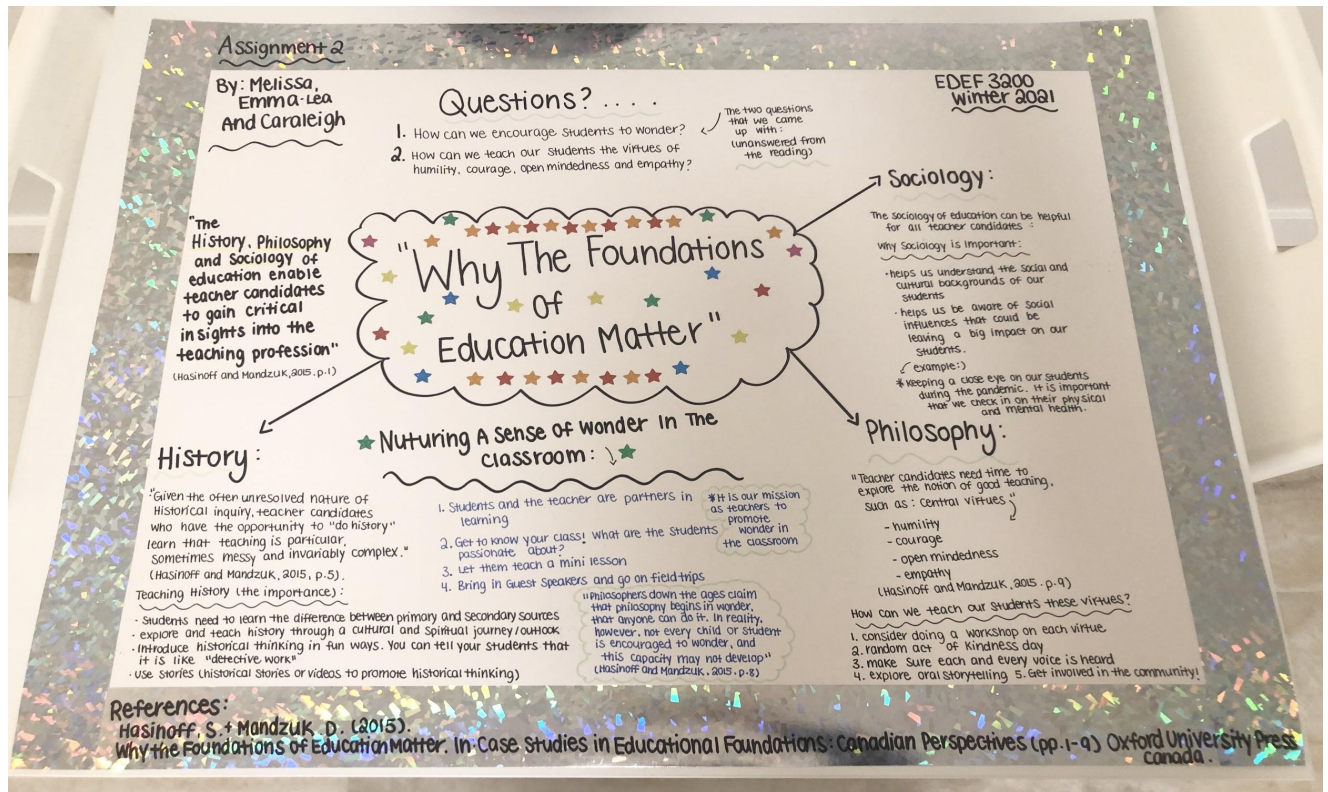 Assignment 2
By: Melissa,
Emma-Lea
And Caraleigh
EDEF 3200
Winter 2021
Questions?....
1. How can we encourage students to wonder?
2. How can we teach our students the virtues of
humility, courage, open mindedness and empathy?
The two questions
that we came
up with:
(unanswered from
the reading)
"The
History, Philosophy
and Sociology of
education enable
teacher candidates
to gain critical
insights into the
teaching profession"
(Hasinoff and Mandzuk, 2015. p.1)
"Why The Foundations
of
Education Matter"
Sociology:
The sociology of education can be helpful
for all teacher candidates :
Why Sociology is Important:
· helps us understand the social and
cultural backgrounds of our
students
· helps us be aware of social
influences that could be
leaving a big impact on our
students.
(example:)
* Keeping a close eye on our students
during the pandemic. It is important
that we check in on their physical
and mental health.
History:
"Given the often unresolved nature of
Historical inquiry, teacher candidates
who have the opportunity to "do history"
learn that teaching is particular,
sometimes messy and invariably complex."
(Hasinoff and Mandzuk, 2015, p.5).
Teaching History (the importance):
· Students need to learn the difference between primary and secondary sources
· explore and teach history through a cultural and spiritual journey/outlook
· Introduce historical thinking in fun ways. You can tell your students that
it is like "detective work"
· use stories (historical stories or videos to promote historical thinking)
Nuturing A Sense of Wonder In The
Classroom:
1. Students and the teacher are partners in
learning
2. Get to know your class! What are the students
passionate about?
3. Let them teach a mini lesson
4. Bring in Guest Speakers and go on field trips
*It is our mission
as teachers to
promote
wonder in
the classroom
"Philosophers down the ages claim
that philosophy begins in wonder,
that anyone can do it. In reality,
however, not every child or student
is encouraged to wonder, and
this capacity may not develop"
(Hasinoff and Mandzuk. 2015. p.8)
Philosophy:
"Teacher candidates need time to
explore the notion of good teaching,
such as: Central Virtues"
- humility
- courage
- open mindedness
- empathy
(Hasinoff and Mandzuk, 2015. p.9)
How can we teach our students these virtues?
1. consider doing a workshop on each virtue
2. random act of kindness day
3. make sure each and every voice is heard
4. explore oral storytelling 5. Get involved in the community!
References:
Hasinoff, S. + Mandzuk, D. (2015).
Why the Foundations of Education Matter. In Case Studies in Educational Foundations: Canadian Perspectives (pp.1-9) Oxford University Press
Canada.